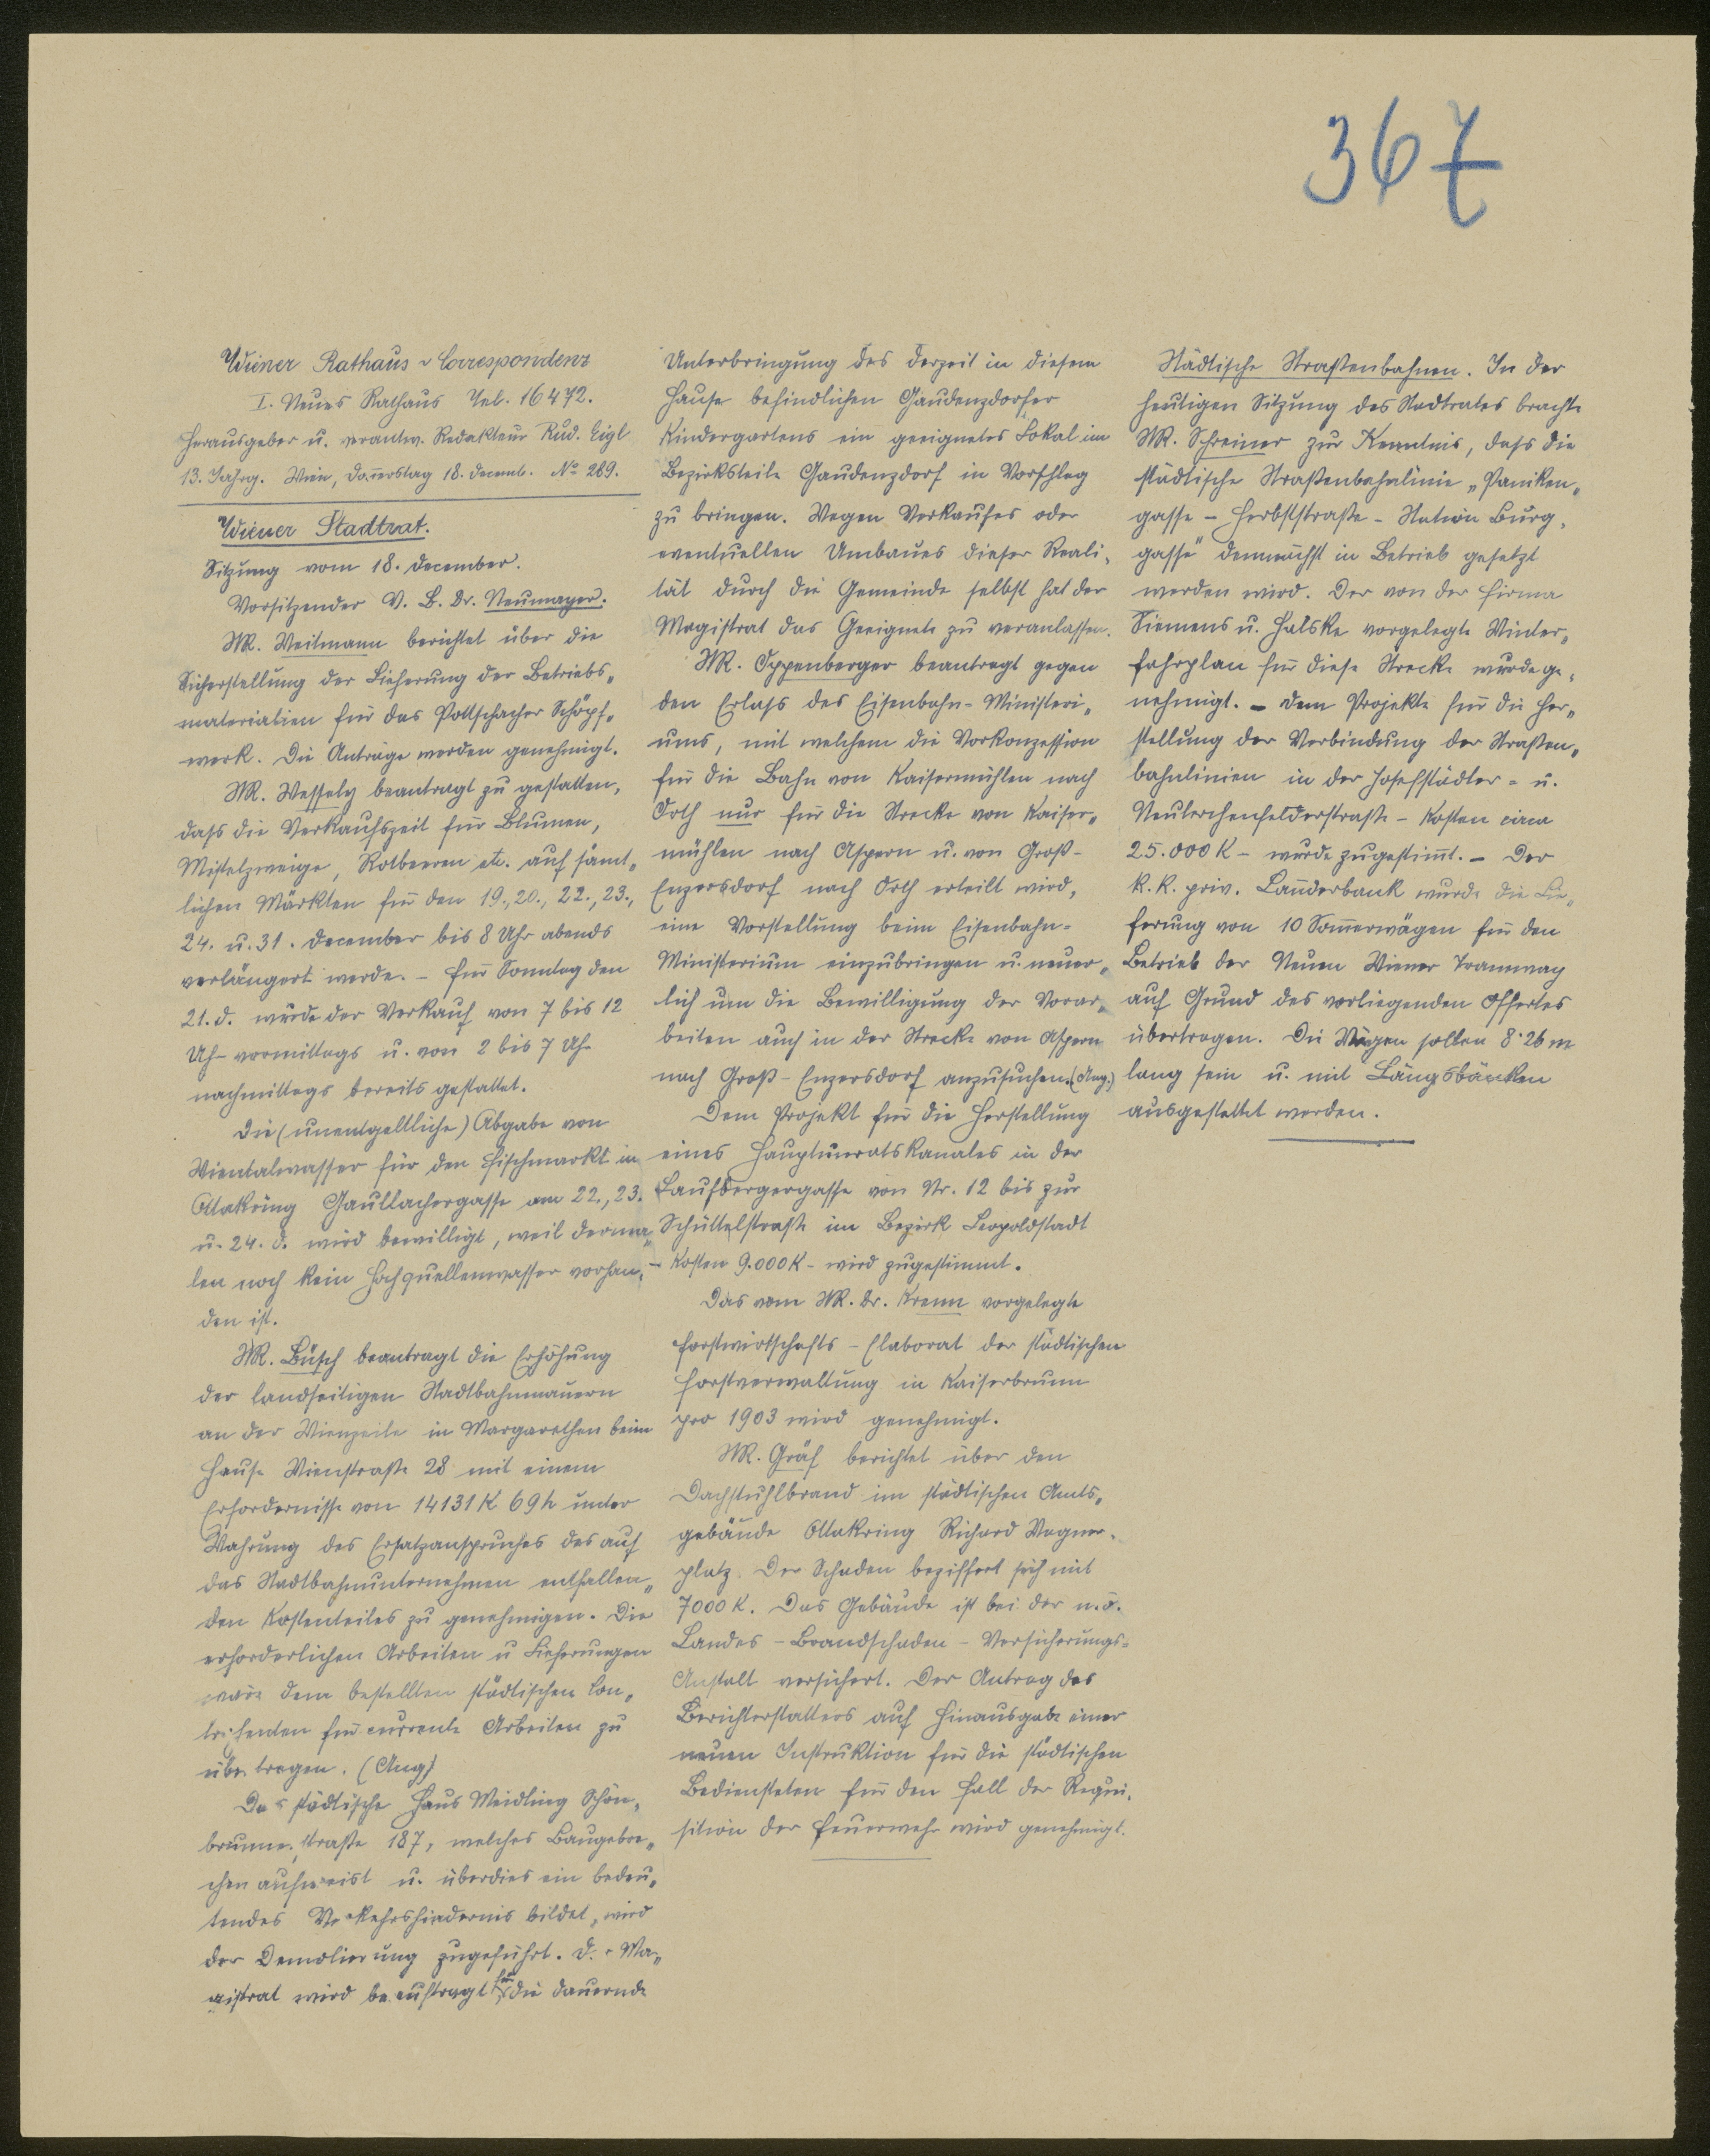 367
Wiener Rathaus-Correspondenz
I. Neues Rathaus Tel. 16472.
Herausgeber u. verantw. Redakteur Rud. Eigl
13. Jahrg. Wien, Donnerstag 18. Decemb. No 289.
Wiener Stadtrat.
Sitzung vom 18. December.
Vorsitzender V. B. Dr. Neumayer.
StR. Weitmann berichtet über die
Sicherstellung der Lieferung der Betriebs„
materialien für das Pottschacher Schöpf„
werk. Die Anträge werden genehmigt.
StR. Wessely beantragt zu gestatten,
daß die Verkaufszeit für Blumen,
Mistelzweige, Rotbeeren etc. auf sämt„
lichen Märkten für den 19., 20., 22., 23.,
24. u. 31. December bis 8 Uhr abends
verlängert werde. – Für Sonntag den
21. d. wurde der Verkauf von 7 bis 12
Uhr vormittags u. von 2 bis 7 Uhr
nachmittags bereits gestattet.
Die (unentgeltliche) Abgabe von
Wientalwasser für den Fischmarkt in
Ottakring Gaullachergasse am 22., 23.
u. 24. d. wird bewilligt, weil derma„
len noch kein Hochquellenwasser vorhan„
den ist.
StR. Büsch beantragt die Erhöhung
der landseitigen Stadtbahnmauern
an der Wienzeile in Margarethen beim
Hause Wienstraße 28 mit einem
Erfordernisse von 14131 K 69 h unter
Wahrung des Ersatzanspruches des auf
das Stadtbahnunternehmen entfallen„
den Kostenteiles zu genehmigen. Die
erforderlichen Arbeiten u Lieferungen
wären dem bestellten städtischen Con„
trahenten für currente Arbeiten zu
übertragen. (Ang)
Das städtische Haus Meidling Schön„
brunnerstraße 187, welches Baugebre„
chen aufweist u. überdies ein bedeu„
tendes Verkehrshindernis bildet, wird
der Demolierung zugeführt. Der Ma„
gistrat wird beauftragt für die dauernde
Unterbringung des derzeit in diesem
Hause befindlichen Gaudenzdorfer
Kindergartens ein geeignetes Lokal im
Bezirksteile Gaudenzdorf in Vorschlag
zu bringen. Wegen Verkaufes oder
eventuellen Umbaues dieser Reali„
tät durch die Gemeinde selbst hat der
Magistrat das Geeignete zu veranlassen.
StR. Oppenberger beantragt gegen
den Erlaß des Eisenbahn-Ministeri„
ums, mit welchem die Vorkonzession
für die Bahn von Kaisermühlen nach
Orth nur für die Strecke von Kaiser„
mühlen nach Aspern u. von Groß-
Enzersdorf nach Orth erteilt wird,
eine Vorstellung beim Eisenbahn-
Ministerium einzubringen u. neuer„
lich um die Bewilligung der Vorar„
beiten auch in der Strecke von Aspern
nach Groß-Enzersdorf anzusuchen. (Ang.)
Dem Projekt für die Herstellung
eines Hauptunratskanales in der
Laufbergergasse von Nr. 12 bis zur
Schüttelstraße im Bezirk Leopoldstadt
– Kosten 9.000 K – wird zugestimmt.
Das vom StR. Dr. Krenn vorgelegte
Forstwirtschafts-Elaborat der städtischen
Forstverwaltung in Kaiserbrunn
pro 1903 wird genehmigt.
StR. Gräf berichtet über den
Dachstuhlbrand im städtischen Amts„
gebäude Ottakring Richard Wagner-
platz. Der Schaden beziffert sich mit
7000 K. Das Gebäude ist bei der n.ö.
Landes-Brandschaden-Versicherungs-
Anstalt versichert. Der Antrag des
Berichterstatters auf Hinausgabe einer
neuen Instruktion für die städtischen
Bediensteten für den Fall der Requi„
sition der Feuerwehr wird genehmigt.
Städtische Straßenbahnen. In der
heutigen Sitzung des Stadtrates brachte
StR. Schreiner zur Kenntnis, daß die
städtische Straßenbahnlinie „Paniken„
gasse – Herbststraße – Station Burg„
gasse" demnächst in Betrieb gesetzt
werden wird. Der von der Firma
Siemens u. Halske vorgelegte Winter„
fahrplan für diese Strecke wurde ge„
nehmigt. – Dem Projekte für die Her„
stellung der Verbindung der Straßen„
bahnlinien in der Josefstädter- u.
Neulerchenfelderstraße – Kosten circa
25.000 K – wurde zugestimmt. – Der
k.k. priv. Länderbank wurde die Lie„
ferung von 10 Sommerwägen für den
Betrieb der Neuen Wiener Tramway
auf Grund des vorliegenden Offertes
übertragen. Die Wägen sollen 8·26 m
lang sein u. mit Längsbänken
ausgestattet werden.